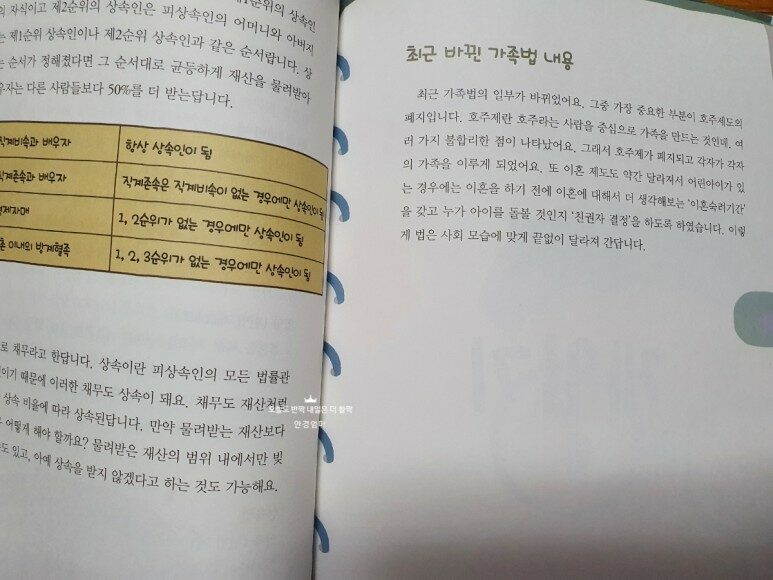 제1순위의 상속인
의 자식이고 제2순위의 상속인은 피상속인의 어머니와 아버지
는 제1순위 상속인이나 제2순위 상속인과 같은 순서랍니다. 상
는 순서가 정해졌다면 그 순서대로 균등하게 재산을 물려받아
우자는 다른 사람들보다 50%를 더 받는답니다.
직계비속과 배우자 항상 상속인이 됨
직계존속과 배우자 직계존속은 직계비속이 없는 경우에만 상속인이 됨
형제자매 1, 2순위가 없는 경우에만 상속인이 됨
촌 이내의 방계혈족 1, 2, 3순위가 없는 경우에만 상속인이 됨
로 채무라고 한답니다. 상속이란 피상속인의 모든 법률관
것이기 때문에 이러한 채무도 상속이 돼요. 채무도 재산처럼
상속 비율에 따라 상속된답니다. 만약 물려받은 재산보다
어떻게 해야 할까요? 물려받은 재산의 범위 내에서만 빚
도 있고, 아예 상속을 받지 않겠다고 하는 것도 가능해요.
오늘도 반짝 내일은 더 활짝
안경엄마
최근 바뀐 가족법 내용
최근 가족법의 일부가 바뀌었어요. 그중 가장 중요한 부분이 호주제도의
폐지입니다. 호주제란 호주라는 사람을 중심으로 가족을 만드는 것인데, 여
러 가지 불합리한 점이 나타났어요. 그래서 호주제가 폐지되고 각자가 각자
의 가족을 이루게 되었어요. 또 이혼 제도도 약간 달라져서 어린아이가 있
는 경우에는 이혼을 하기 전에 이혼에 대해서 더 생각해보는 '이혼숙려기간'
을 갖고 누가 아이를 돌볼 것인지 '친권자 결정'을 하도록 하였습니다. 이렇
게 법은 사회 모습에 맞게 끝없이 달라져 간답니다.